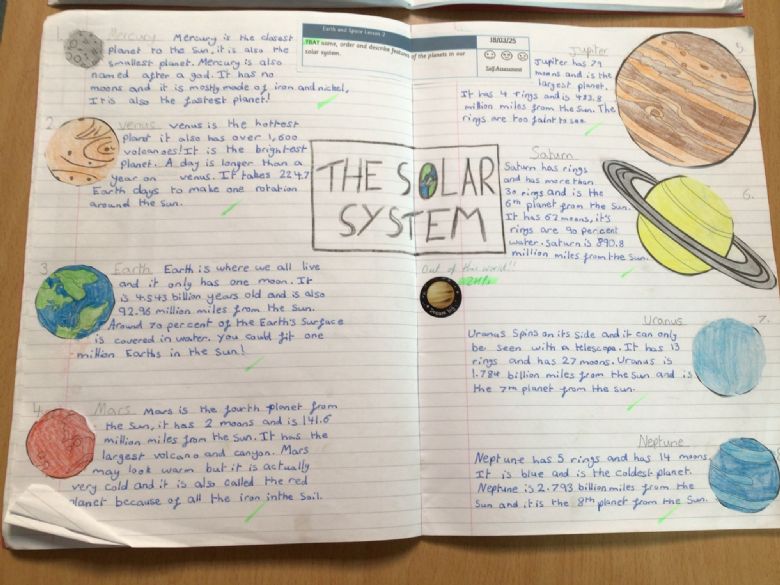 1.
Mercury Mercury is the closest
planet to the Sun, it is also the
smallest planet. Mercury is also
named after a god. It has no
moons and it is mostly made of iron and nickel,
It is also the fastest planet!
Earth and Space Lesson 2
TBAT name, order and describe features of the planets in our
solar system.
18/03/25
Self-Assessment
2.
Venus Venus is the hottest
Planet it also has over 1,600
volcanoes! It is the brightest
Planet. A day is longer than a
year on Venus. It takes 224.7
Earth days to make one rotation
around the Sun.
3.
Earth Earth is where we all live
and it only has one moon. It
is 4.543 billion years old and is also
92.96 million miles from the Sun.
Around 70 percent of the Earth's Surface
is covered in water. You could fit one
million Earths in the Sun!
4.
Mars Mars is the fourth planet from
the Sun, it has 2 moons and is 141.6
million miles from the Sun. It has the
largest volcano and canyon. Mars
may look warm but it is actually
very cold and it is also called the red
planet because of all the iron in the Soil.
THE SOLAR
SYSTEM
Out of this world!!
5.
Jupiter
Jupiter has 79
moons and is the
largest planet.
It has 4 rings and is 483.8
million miles from the Sun. The
rings are too faint to see.
6.
Saturn
Saturn has rings
and has more than
30 rings and is the
6th planet from the Sun.
It has 62 moons, it's
rings are 90 percent
water. Saturn is 890.8
million miles from the Sun.
7.
Uranus
Uranus Spins on its side and it can only
be seen with a telescope. It has 13
rings and has 27 moons. Uranus is
1.784 billion miles from the Sun and is
the 7th planet from the Sun.
Neptune
Neptune has 5 rings and has 14 moons.
It is blue and is the coldest planet.
Neptune is 2.793 billion miles from the
Sun and it is the 8th planet from the Sun.